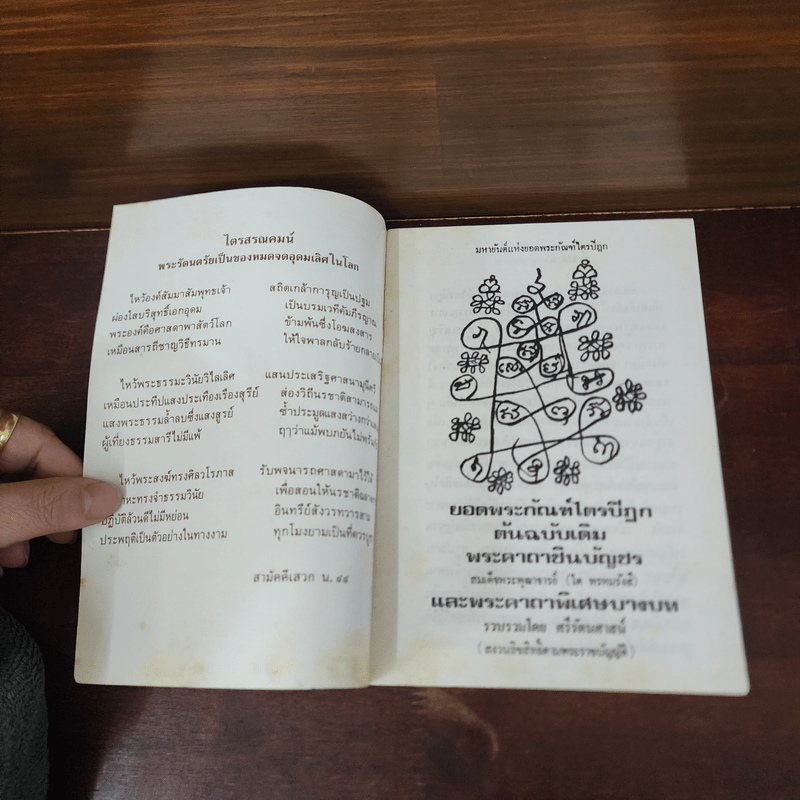 ไตรสรณคมน์
พระรัตนตรัยเป็นของหมดจดอุดมเลิศในโลก
ไหว้องค์สัมมาสัมพุทธเจ้า สถิตเกล้าการุญเป็นปฐม
ผ่องใสบริสุทธิ์เอกอุดม เป็นบรมเวทีคัมภีรญาณ
พระองค์คือศาสดาพาสัตว์โลก ข้ามพ้นซึ่งโอฆสงสาร
เหมือนสารถีชาญวิธีทรมาน ให้ใจพาลกลับร้าย
ไหว้พระธรรมะวินัยวิไลเลิศ แสนประเสริฐศาสนามุนีศรี
เหมือนประทีปแสงประเทืองเรืองสุรีย์ ส่องวิถีนรชาติสามารถ
แสงพระธรรมล้ำลบซึ่งแสงสูรย์ ซ้ำประมูลแสงสว่าง
ผู้เที่ยงธรรมสารีไม่มีแพ้ ฤๅว่าแม้พบภยันไม่
ไหว้พระสงฆ์ทรงศีลวโรภาส รับพจนารถศาสดามาไว้ได้
ทรงจำธรรมวินัย เพื่อสอนให้นรชาติ
ปฏิบัติล้วนดีไม่มีหย่อน อินทรีย์สังวรทวารสาม
ประพฤติเป็นตัวอย่างในทางงาม ทุกโมงยามเป็นที่ควร
สามัคคีเสวก น. ๔๔
มหายันต์แห่งยอดพระกัณฑ์ไตรปิฎก
ยอดพระกัณฑ์ไตรปิฎก
ต้นฉบับเดิม
พระคาถาชินบัญชร
สมเด็จพระพุฒาจารย์ (โต พรหมรังสี)
และพระคาถาพิเศษบางบท
รวบรวมโดย ศรีรัตนศาสน์
(สงวนลิขสิทธิ์ตามพระราชบัญญัติ)